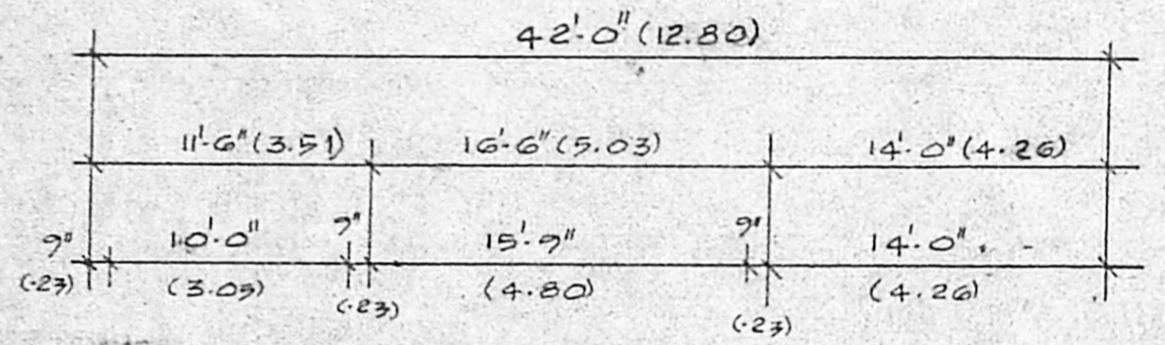 42'-0" (12.80)
11'-6" (3.51) 16'-6" (5.03) 14'-0" (4.26)
9" 10'-0" 9" 15'-9" 9" 14'-0"
(.23) (3.05) (.23) (4.80) (.23) (4.26)